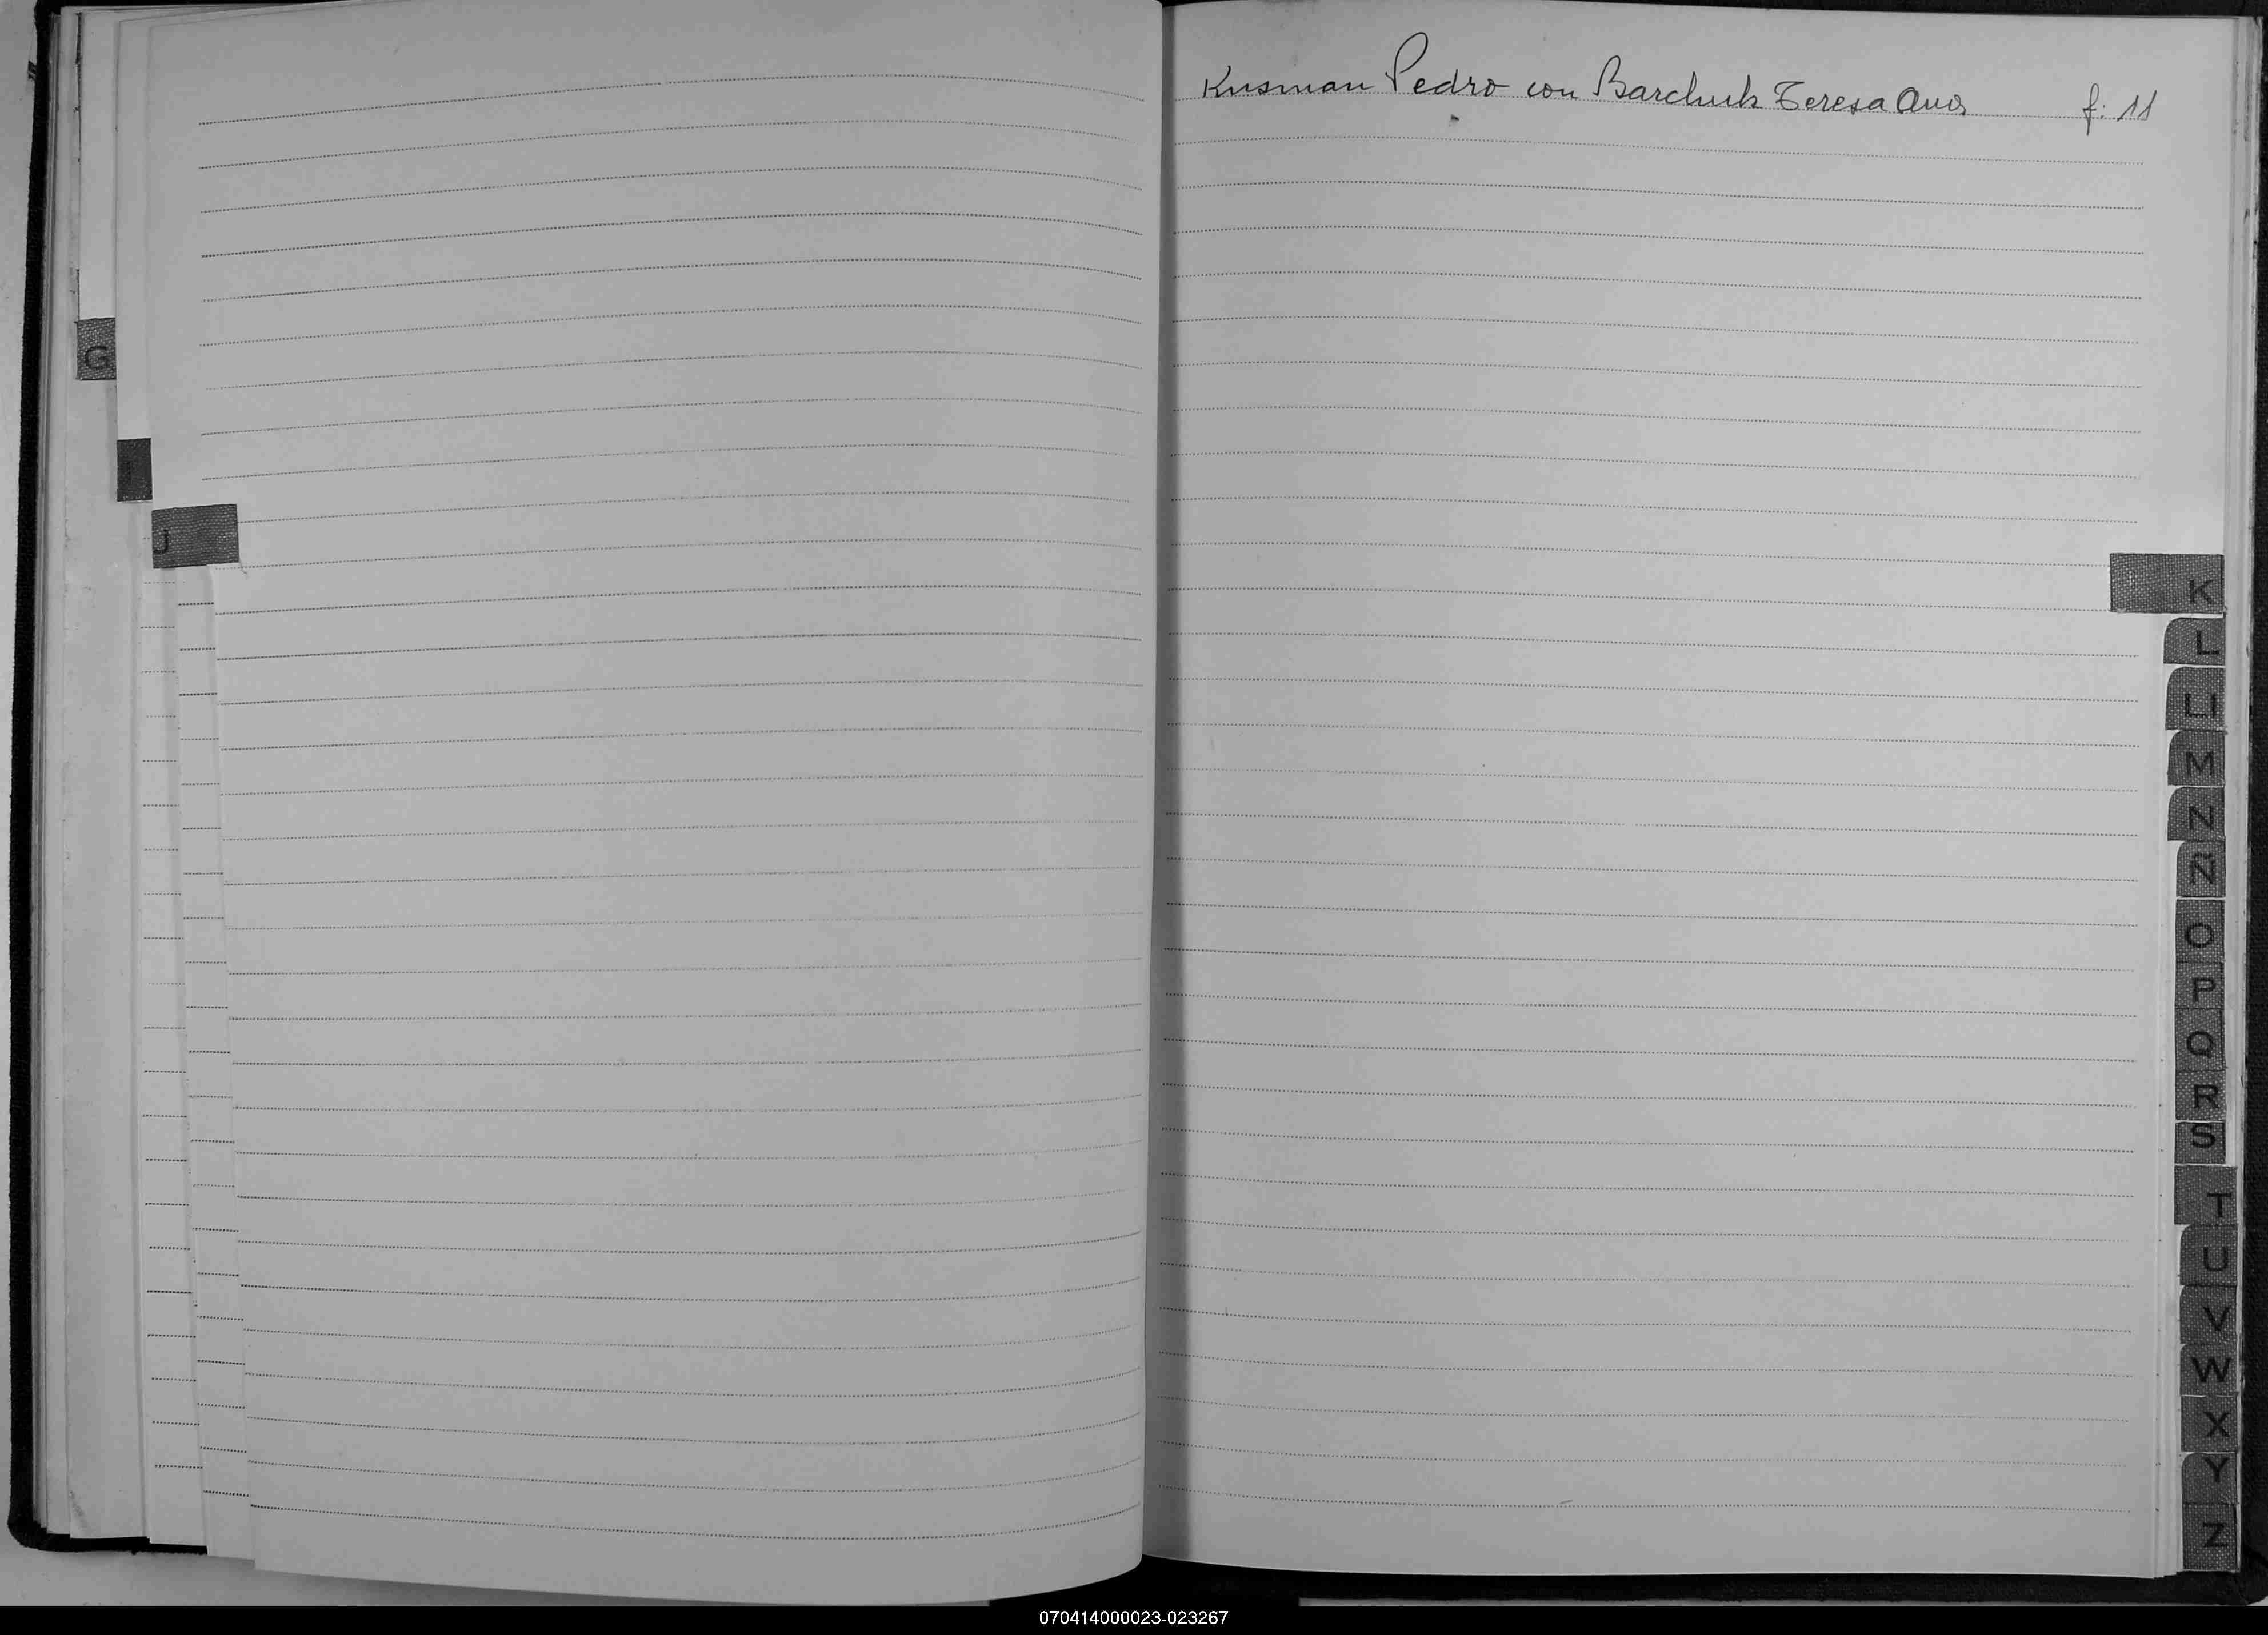 Kusman Pedro con Barchuk Teresa Ana f. 11
G
I
J
K
L
Ll
M
N
Ñ
O
P
Q
R
S
T
U
V
W
X
Y
Z
070414000023-023267